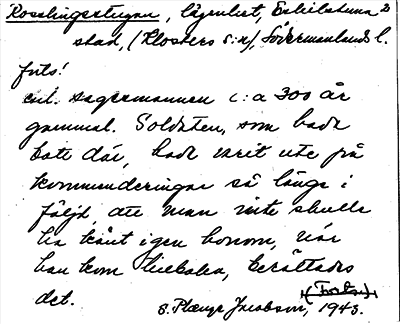 Rosslingsstugan, lägenhet, Eskilstuna
stad, (Klosters s:n), Södermanlands l.
forts!
enl. sagesmannen c:a 300 år
gammal. Soldaten, som hade
bott där, hade varit ute på
kommenderingar så länge i
följd, att man inte skulle
ha känt igen honom, när
han kom tillbaka, berättades
det.
(Forts.)
S. Plænge Jacobson, 1943.